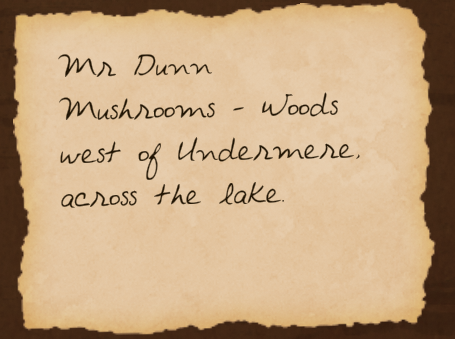 Mr Dunn
Mushrooms - Woods
west of Undermere,
across the lake.